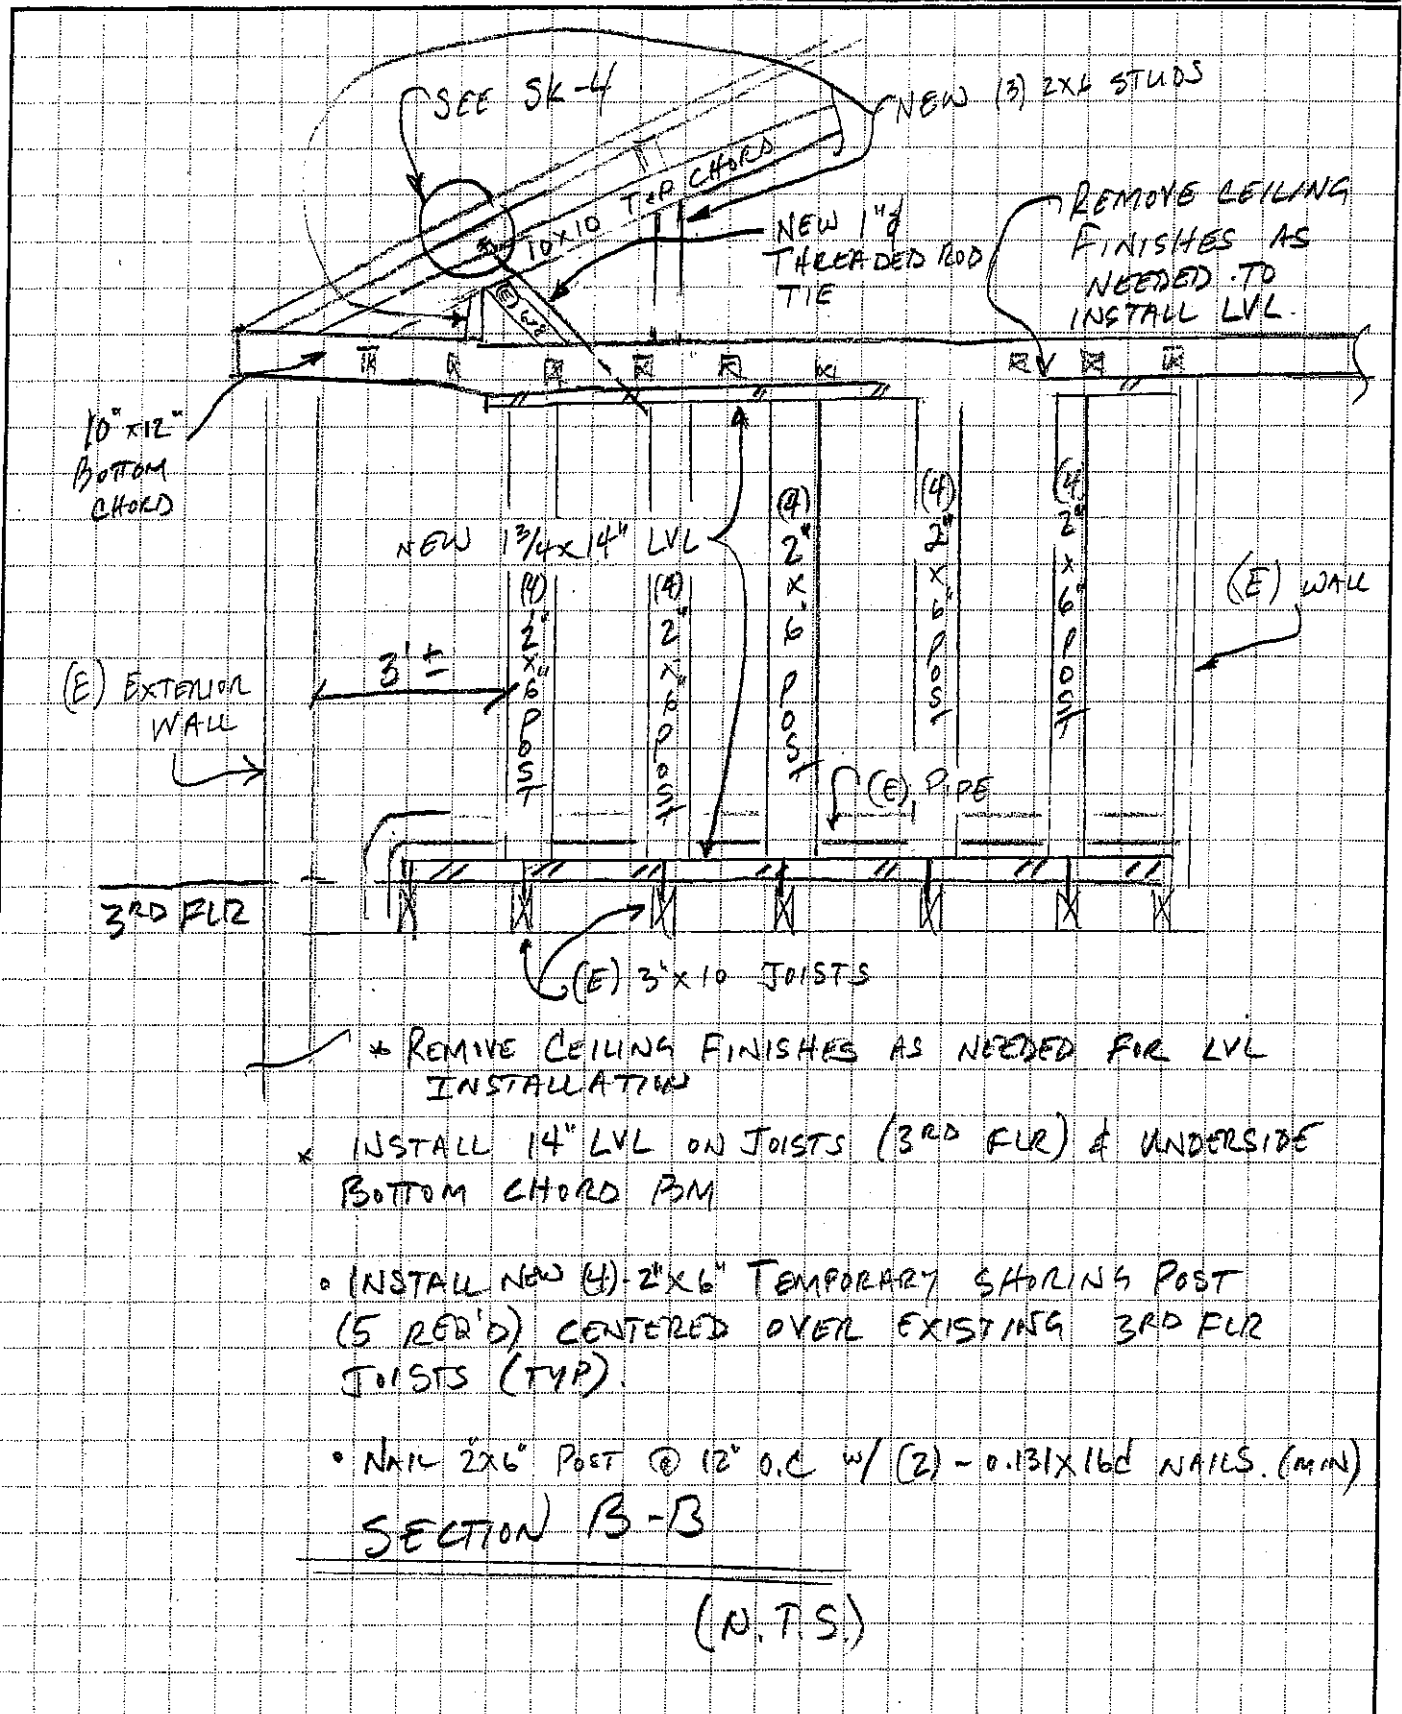 SEE SK-4
NEW (3) 2X6 STUDS
10X10 TOP CHORD
NEW 1"ϕ
THREADED ROD
TIE
REMOVE CEILING
FINISHES AS
NEEDED TO
INSTALL LVL.
(E) 6x8
10"x12"
BOTTOM
CHORD
NEW 1 3/4 x 14" LVL
(4) 2"x6" POST
(4) 2"x6" POST
(4) 2"x6 POST
(4) 2"x6" POST
(4) 2"x6" POST
(E) WALL
3'±
(E) EXTERIOR
WALL
(E) PIPE
3RD FLR
(E) 3"x10 JOISTS
* REMOVE CEILING FINISHES AS NEEDED FOR LVL
INSTALLATION
* INSTALL 14" LVL ON JOISTS (3RD FLR) & UNDERSIDE
BOTTOM CHORD BM
• INSTALL NEW (4)-2"x6" TEMPORARY SHORING POST
(5 REQ'D) CENTERED OVER EXISTING 3RD FLR
JOISTS (TYP).
• NAIL 2"x6" POST @ 12" O.C W/ (2) - 0.131X16d NAILS. (MIN)
SECTION B-B
(N.T.S.)